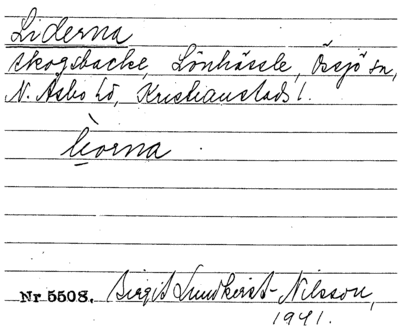 Liderna
skogsbacke, Lönhässle, Össjö sn,
N. Åsbo hd, Kristianstads l.
lìorna
Nr 5508. Birgit Lundkvist-Nilsson,
1941.